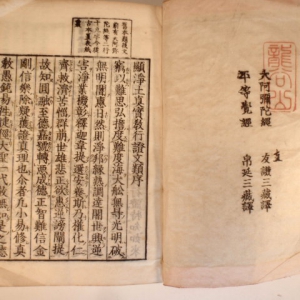 龍谷山
大阿彌陀經 友謙三藏譯
支
平等覺經 帛延三藏譯
顯淨土真實教行證文類序
竊以難思弘誓度難度海大船無碍光明破
無明闇惠日然則淨邦緣熟調達闍世興逆
害淨業機彰釋迦韋提選安養斯乃權化仁
齊救濟苦惱群萌世雄悲正欲惠逆謗闡提
故知圓融至德嘉號轉惡成德正智難信金
剛信樂除疑獲證真理也爾者凡小易修真
教愚鈍易往捷徑大聖一代教無如是之德